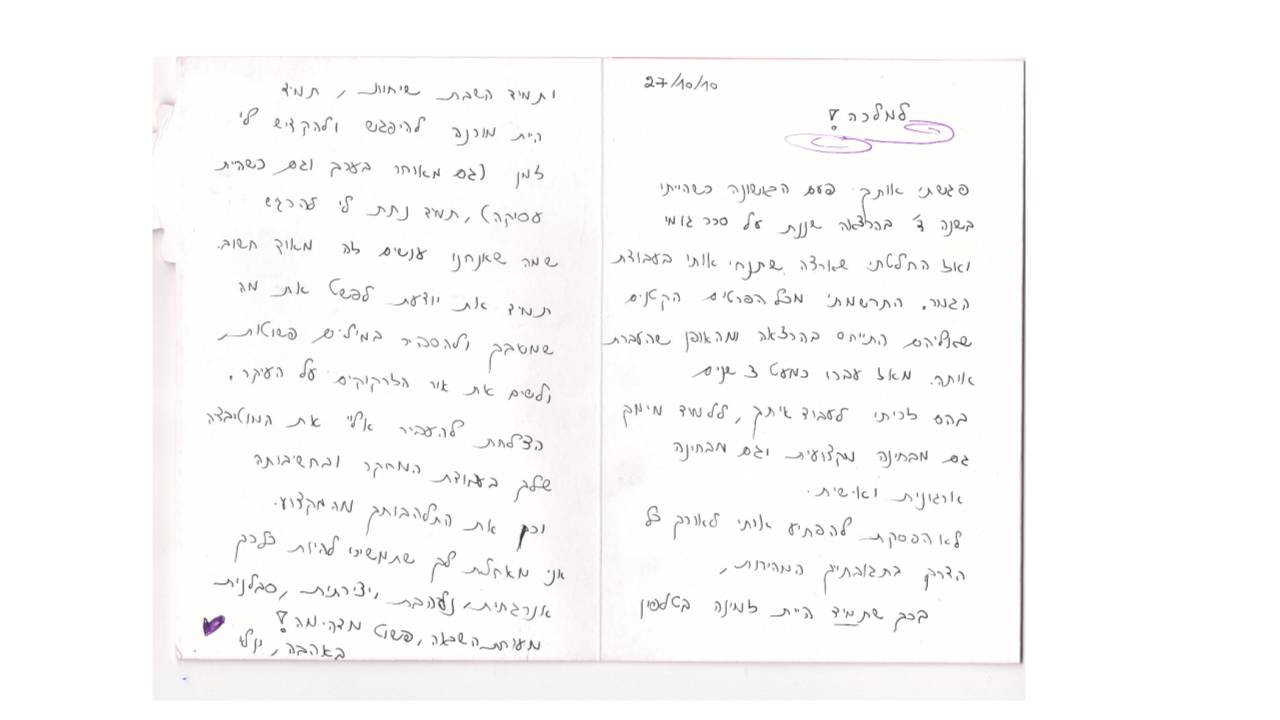 27/10/10
למלכה!
פגשתי אותך פעם הראשונה כשהייתי
בשנה ד' בהרצאה שנתת על סכר גומי
ואז החלטתי שארצה שתנחי אותי בעבודת
הגמר. התרשמתי מכל הפרטים הקטנים
שאליהם התייחס בהרצאה ומהאופן שהעברת
אותה. מאז עברו כמעט 3 שנים
בהם זכיתי לעבוד איתך, ללמוד מימך
גם מבחינה מקצועית וגם מבחינה
ארגונית ואישית.
לא הפסקת להפתיע אותי לאורך כל
הדרך בתגובתיך המהירות,
בכך שתמיד היית זמינה בטלפון
ותמיד השבת שיחות, תמיד
היית מוכנה להיפגש ולהקדיש לי
זמן (גם מאוחר בערב וגם כשהית
עסיקה), תמיד נתת לי להרגיש
שמה שאנחנו עושים זה מאוד חשוב.
תמיד את יודעת לפשט את מה
שמסובך ולהסביר במילים פשוטות,
ולשים את אור הזרקוקים על העיקר.
הצלחת להעביר אליי את המוטיבציה
שלך בעבודת המחקר ובחשיבותה
וכן את התלהבותך מהמקצוע.
אני מאחלת לך שתמשיכי להיות כל כך
אנרגתית, נלהבת, יצירתית, סבלנית
מעוררת השראה, פשוט מדהימה!
באהבה,